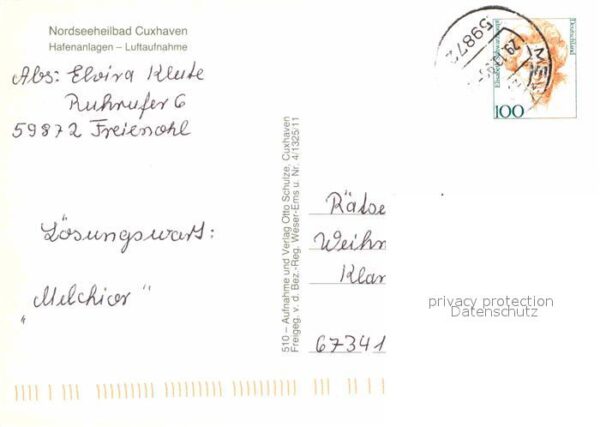 Nordseeheilbad Cuxhaven
Hafenanlagen – Luftaufnahme
Abs: Elvira Klute
Ruhrufer 6
59872 Freienohl
Lösungswort:
„Melchior"
510 – Aufnahme und Verlag Otto Schulze, Cuxhaven
Freigeg. v. d. Bez.-Reg. Weser-Ems u. Nr. 4/1325/11
59872
29
Deutschland
100
Rätse
Weihn
Klar
67341
privacy protection
Datenschutz